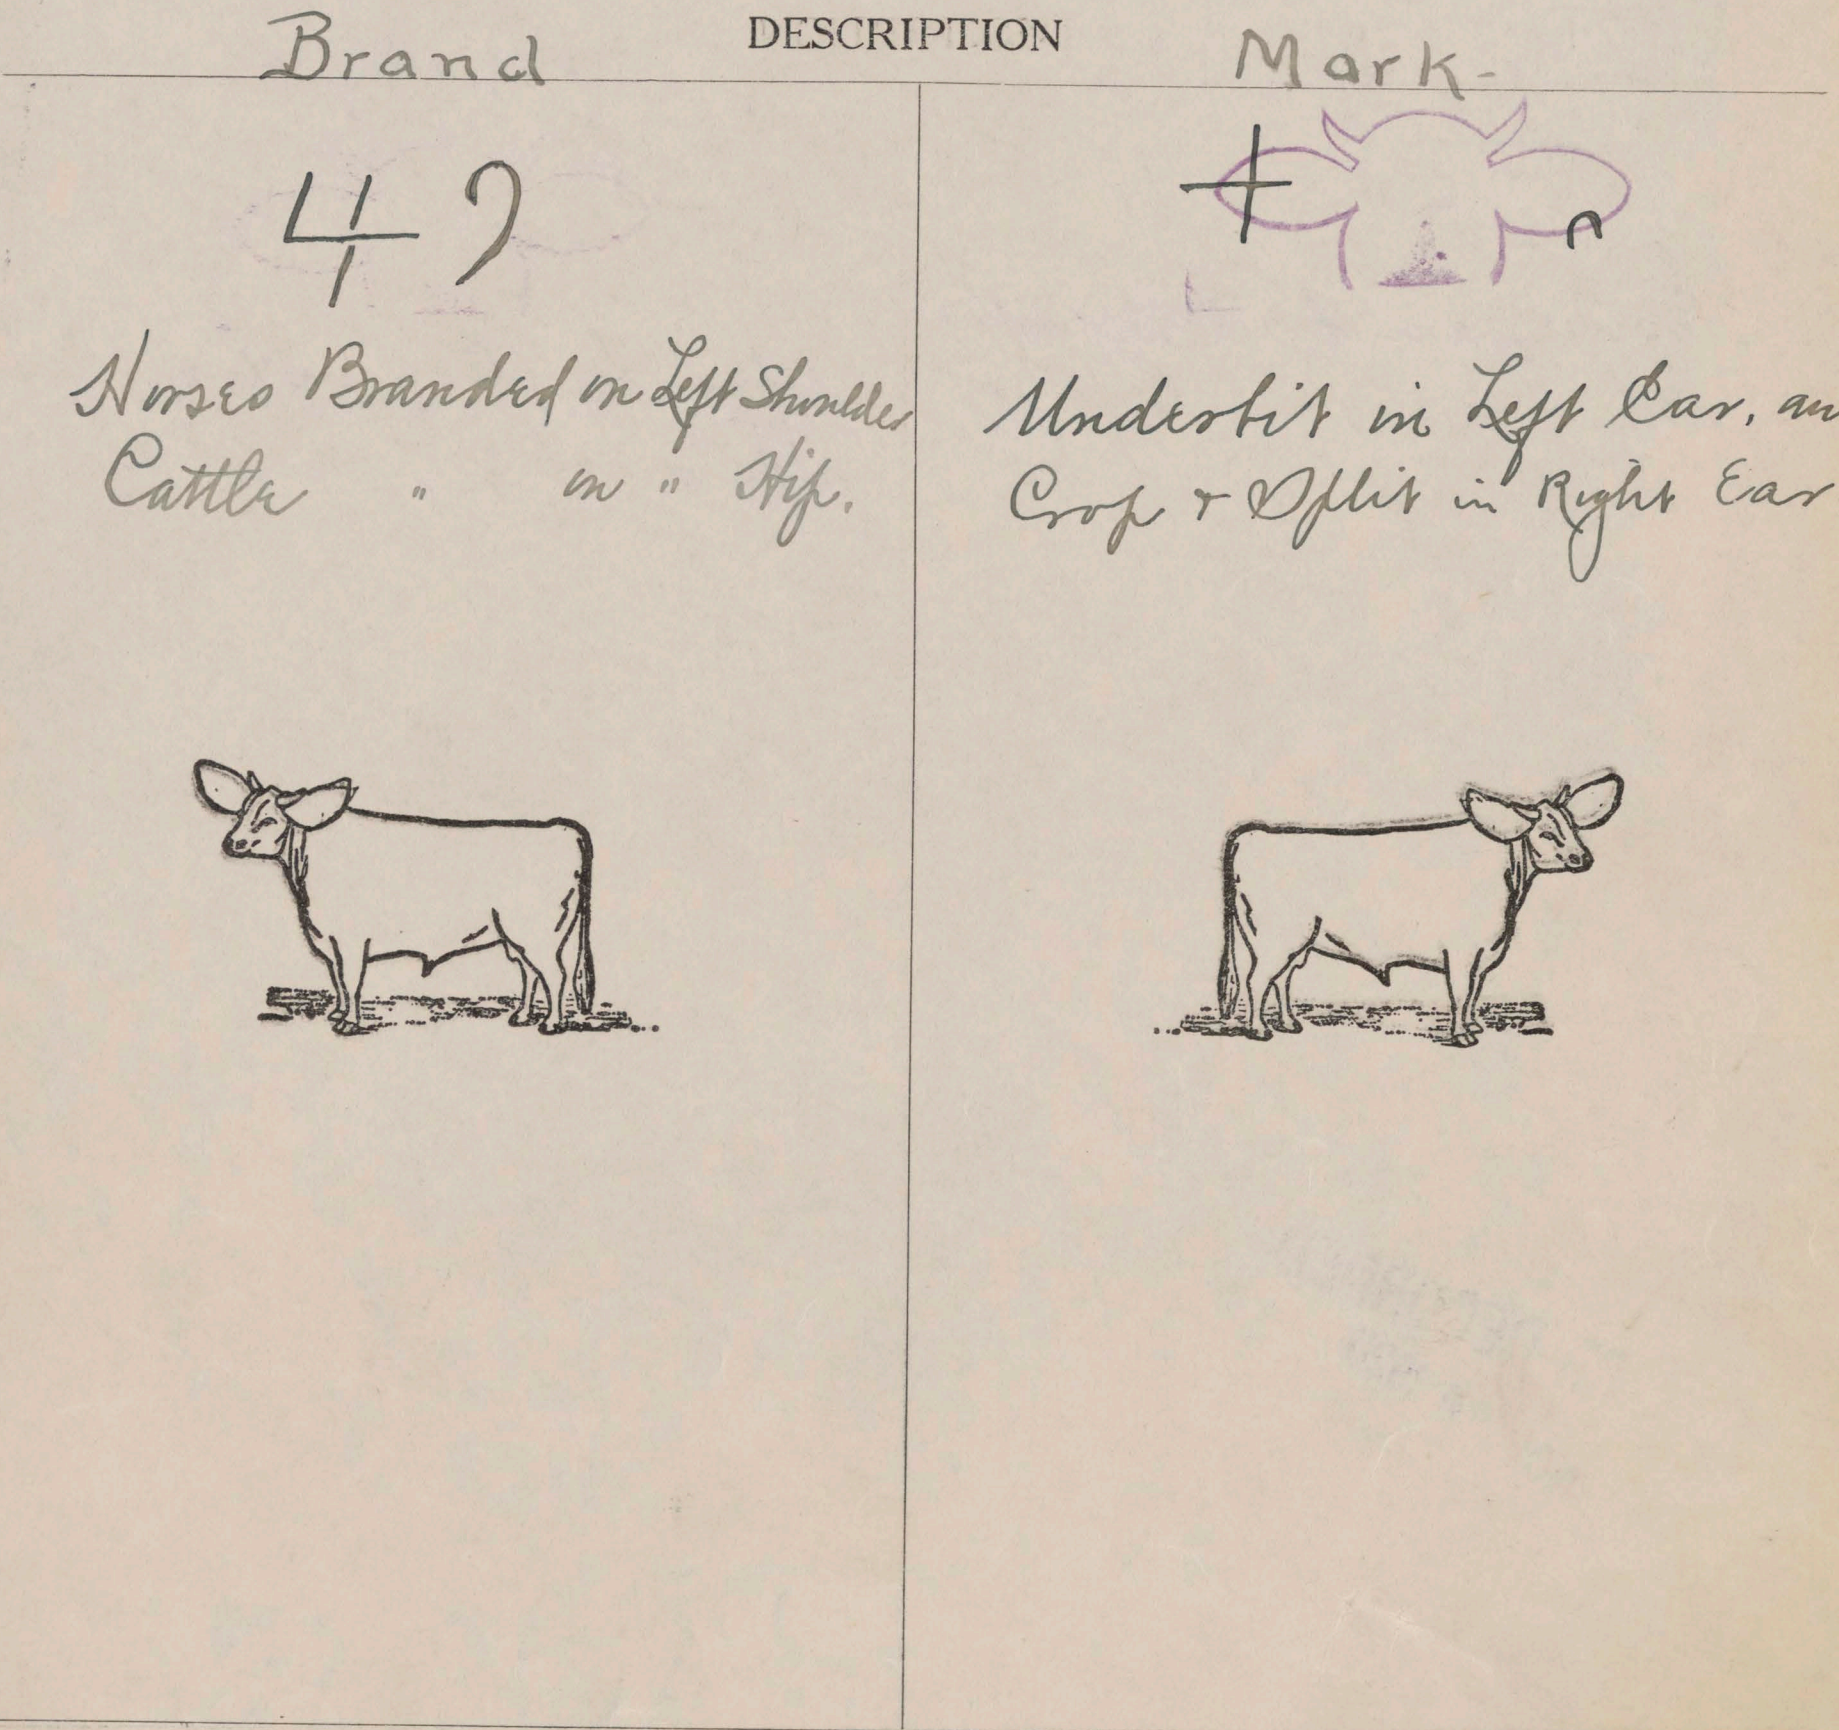 Brand
DESCRIPTION
Mark-
4 9
Horses Branded on Left Shoulder
Cattle " on " Hip.
Underbit in Left Ear, an
Crop & Split in Right Ear